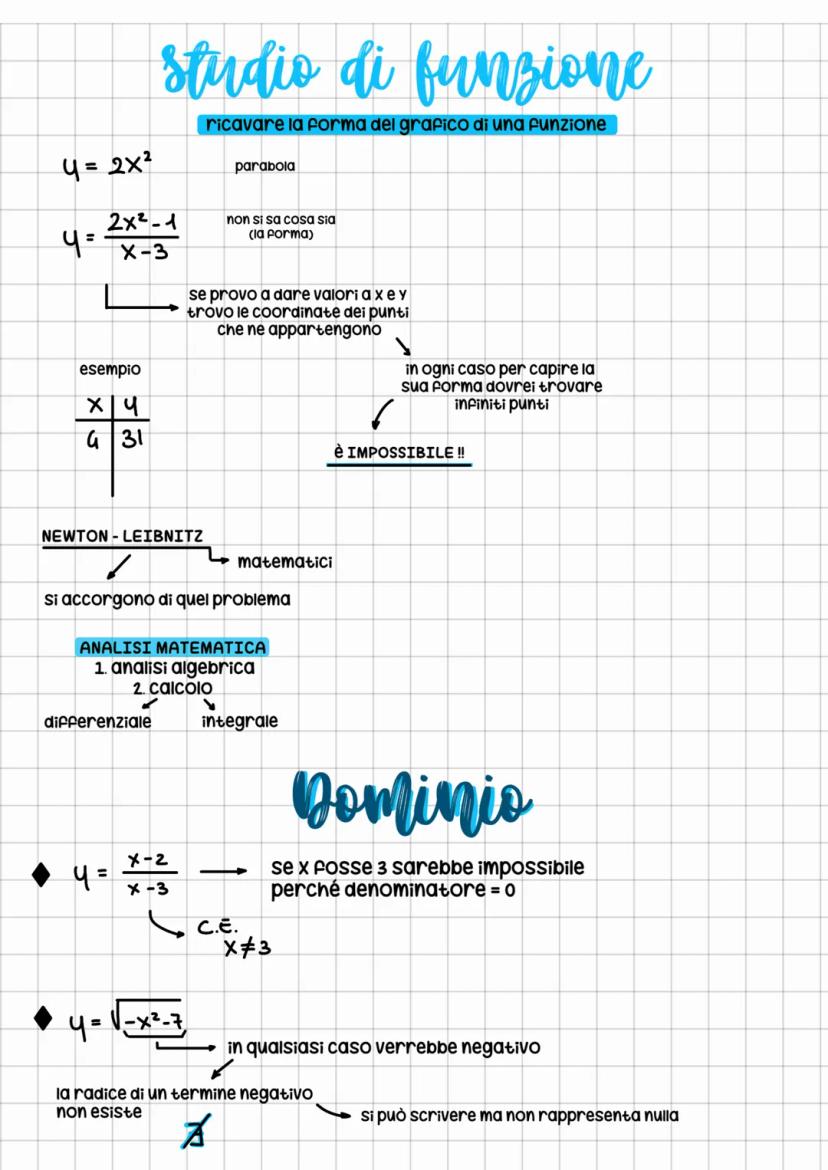 studio di funzione
ricavare la forma del grafico di una funzione
y = 2x² parabola
y = (2x² - 1)/(x - 3) non si sa cosa sia
(la forma)
se provo a dare valori a x e y
trovo le coordinate dei punti
che ne appartengono
in ogni caso per capire la
sua forma dovrei trovare
infiniti punti
è IMPOSSIBILE !!
esempio
x | y
4 | 31
NEWTON - LEIBNITZ
matematici
si accorgono di quel problema
ANALISI MATEMATICA
1. analisi algebrica
2. calcolo
differenziale integrale
Dominio
y = (x - 2)/(x - 3) se x fosse 3 sarebbe impossibile
perché denominatore = 0
C.E.
x ≠ 3
y = √(-x² - 7)
in qualsiasi caso verrebbe negativo
la radice di un termine negativo
non esiste
si può scrivere ma non rappresenta nulla
∄